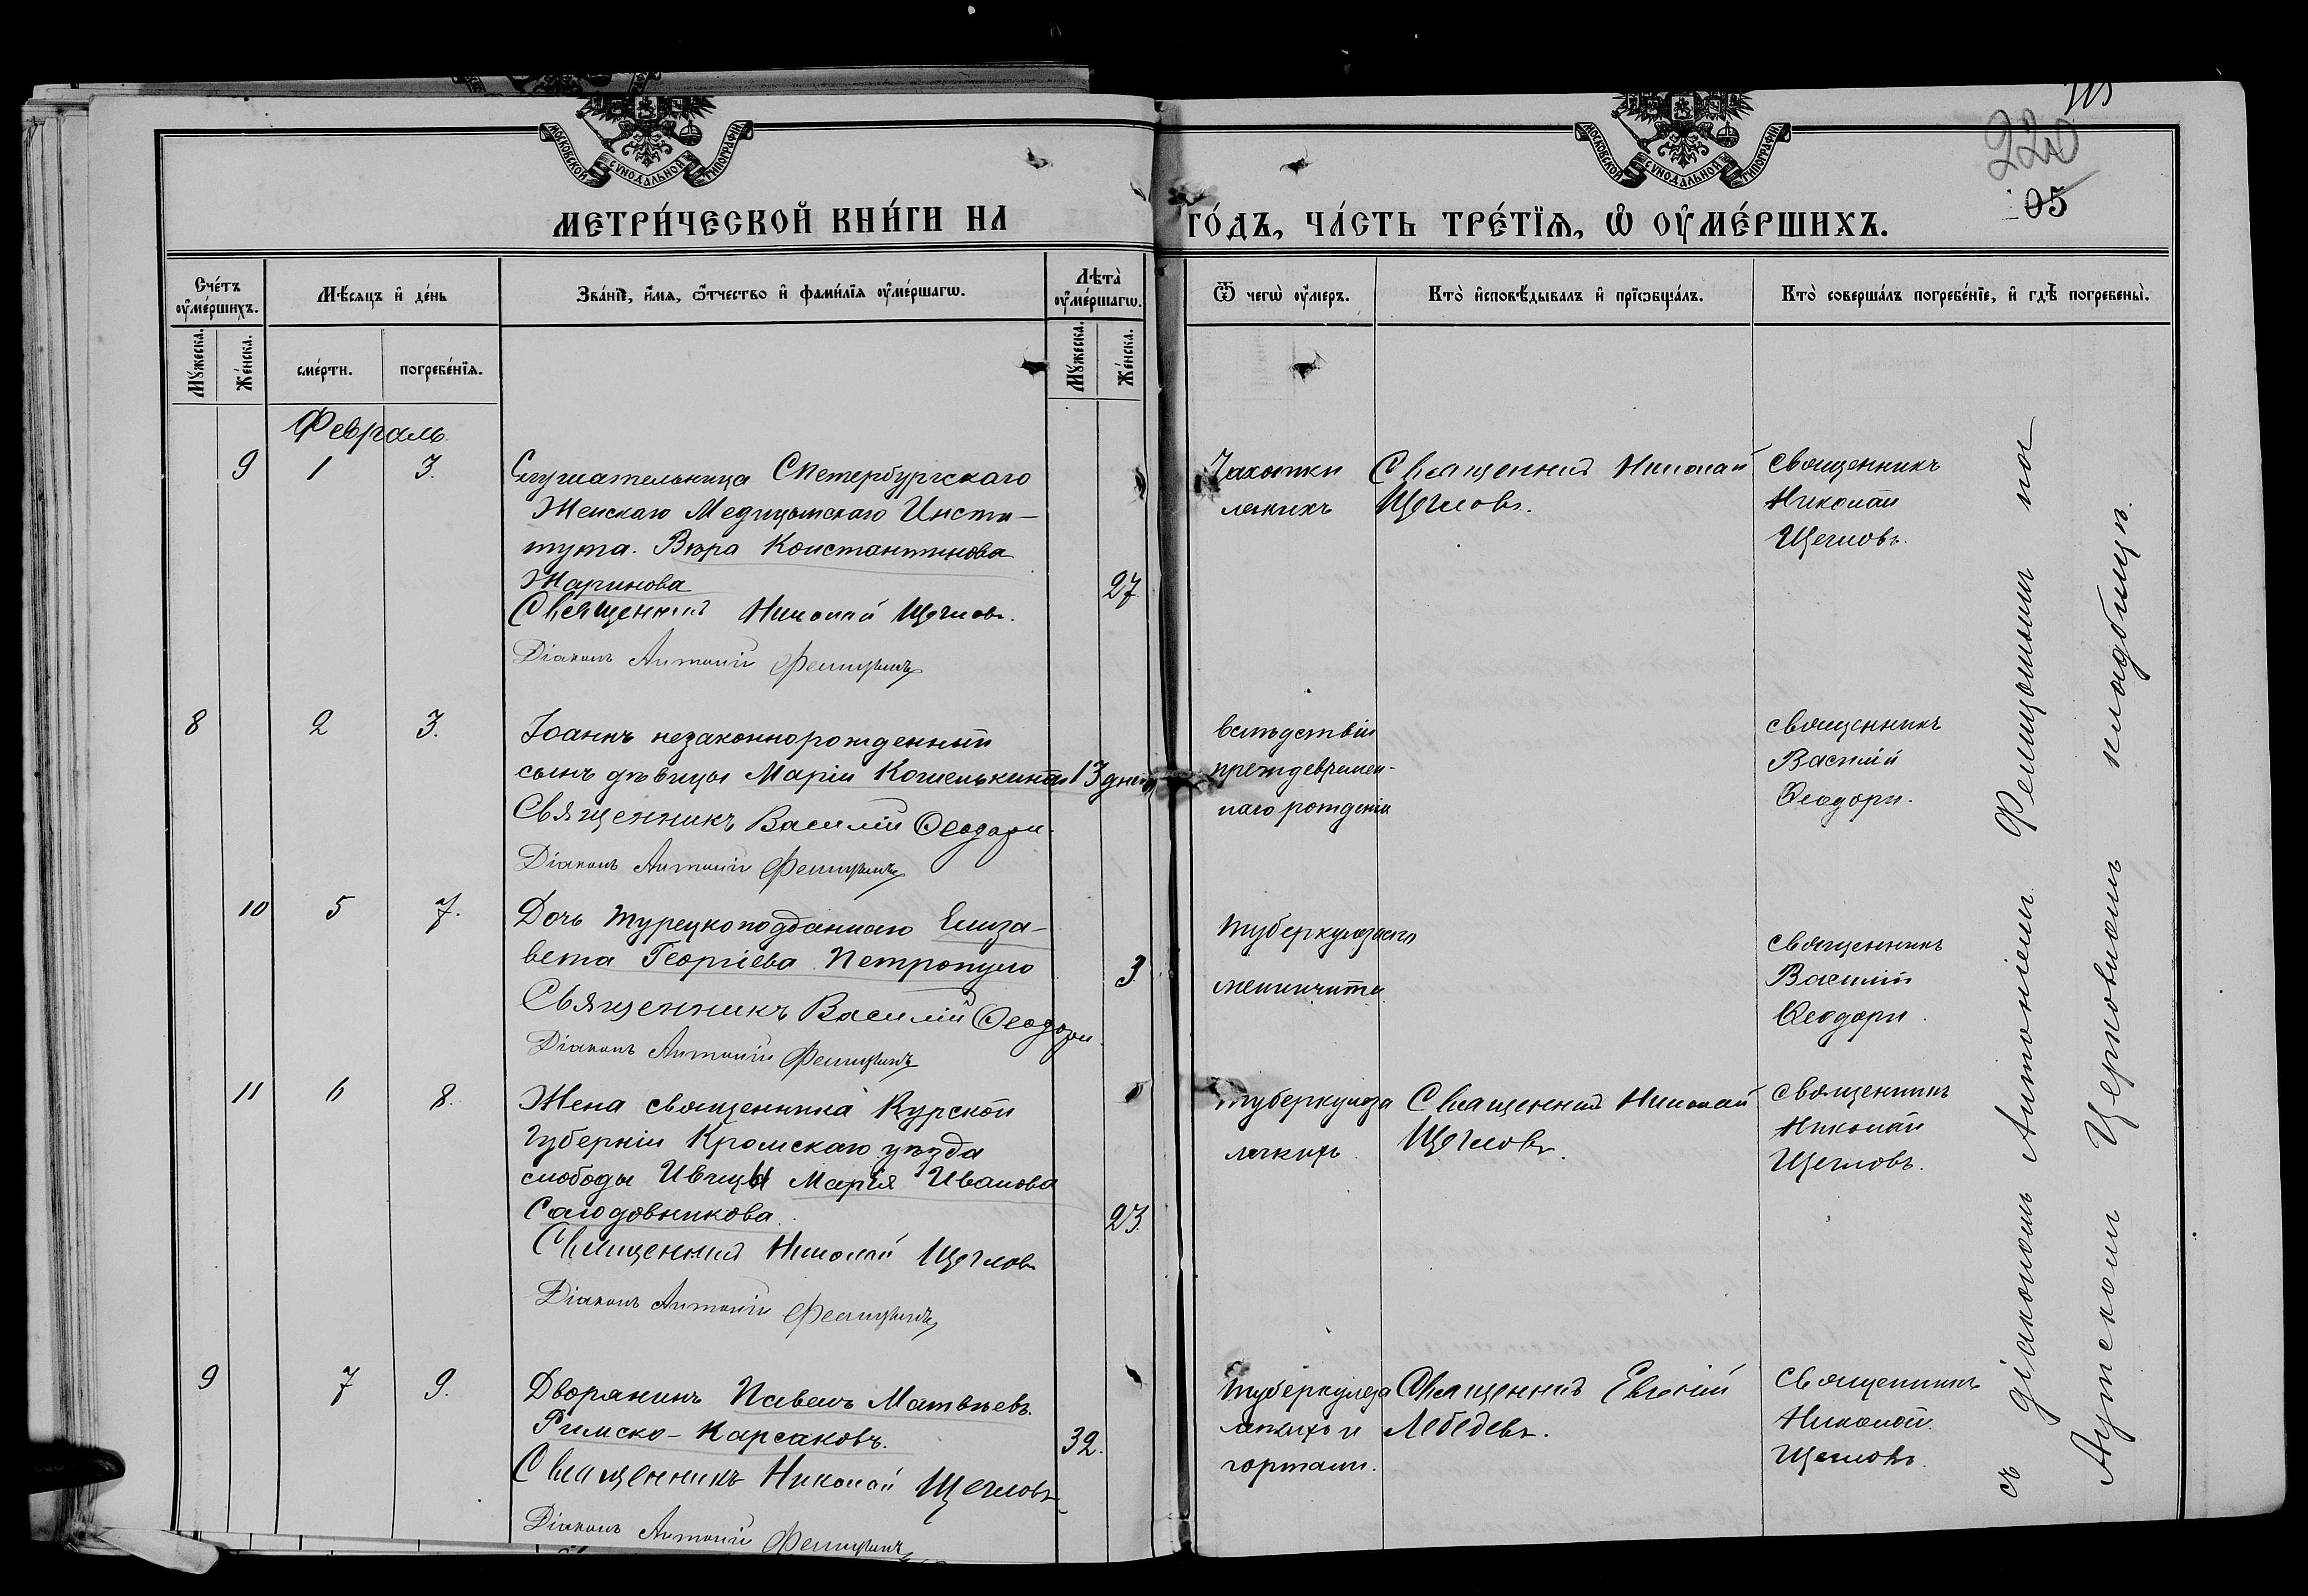 МОСКОВСКОЙ СѴНОДАЛЬНОЙ ТИПОГРАФІИ
МОСКОВСКОЙ СѴНОДАЛЬНОЙ ТИПОГРАФІИ
220
05
МЕТРИ́ЧЕСКОЙ КНИ́ГИ НА ГО́ДЪ, ЧА́СТЬ ТРЕ́ТЇѦ, Ѡ҆ ОУ҆МЕ́РШИХЪ.
Сче́тъ оу҆ме́ршихъ.
Мѣ́сяцъ и҆ де́нь
Зва́нїе, и҆́мя, ѻ҆́тчество и҆ фами́лїя оу҆ме́ршагѡ.
Лѣ́та оу҆ме́ршагѡ.
Ѿ чегѡ̀ оу҆́меръ.
Кто̀ и҆сповѣ́дывалъ и҆ прїѡбща́лъ.
Кто̀ соверша́лъ погребе́нїе, и҆ гдѣ̀ погребены̀.
Мꙋ́жеска.
Же́нска.
сме́рти.
погребе́нїя.
Мꙋ́жеска.
Же́нска.
Февраль
9 1 3. Слушательница СПетербургскаго
Женскаго Медицинскаго Инсти-
тута. Вѣра Константинова
Жаринова 27
Священникъ Николай Щегловъ.
Діаконъ Антоній Фелицынъ
Чахотки
легкихъ
Священникъ Николай
Щегловъ.
священникъ
Николай
Щегловъ.
8 2 3. Іоаннъ незаконнорожденный
сынъ дѣвицы Маріи Кошелькиной 13 дней
Священникъ Василій Ѳеодори.
Діаконъ Антоній Фелицынъ
вслѣдствіи
преждевремен-
наго рожденія
священникъ
Василій
Ѳеодори.
10 5 7. Дочь турецкоподданнаго Елиза-
вета Георгіева Петропуло 3
Священникъ Василій Ѳеодори.
Діаконъ Антоній Фелицынъ
туберкулезнаго
менингита
священникъ
Василій
Ѳеодори.
11 6 8. Жена священника Курской
Губерніи Кромскаго уѣзда
слободы Ивицы Марія Иванова
Солодовникова. 23.
Священникъ Николай Щегловъ
Діаконъ Антоній Фелицынъ
туберкулеза
легкихъ
Священникъ Николай
Щегловъ.
священникъ
Николай
Щегловъ.
9 7 9. Дворянинъ Павелъ Матвѣевъ.
Римско-Карсаковъ. 32.
Священникъ Николай Щегловъ
Діаконъ Антоній Фелицынъ
туберкулеза
легкихъ и
гортани.
Священникъ Евгеній
Лебедевъ.
священникъ
Николай
Щегловъ.
съ діакономъ Антоніемъ Фелицынымъ на
Аутскомъ Церковномъ кладбищѣ.